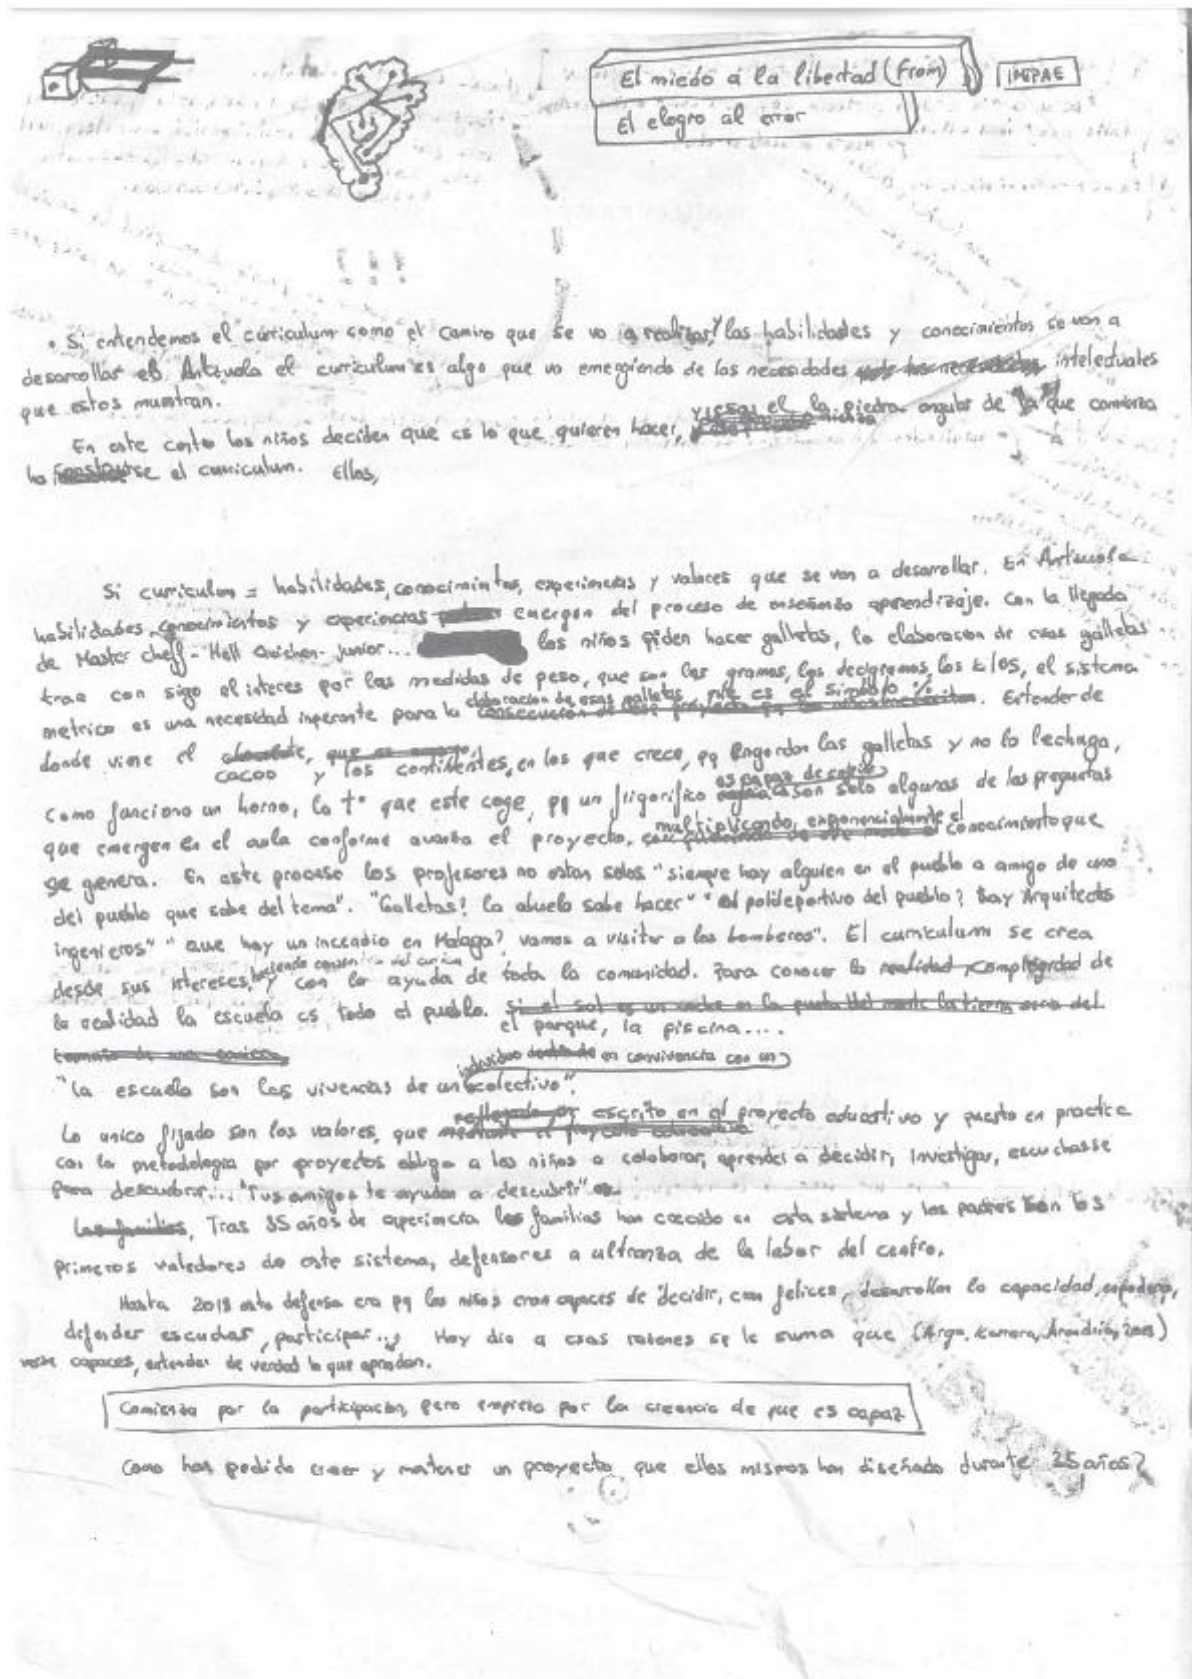 El miedo a la libertad (From)
IMIPAE
El elogro al error
• Si entendemos el curriculum como el camino que se va a realizar, y las habilidades y conocimientos se van a
desarrollar el Antzuola el curriculum es algo que va emergiendo de las necesidades intelectuales
que estos muestran.
y esa el la piedra angular de la que comienza
En este centro los niños deciden que es lo que quieren hacer,
ha construirse el curriculum. Ellos,
Si curriculum = habilidades, conocimientos, experiencias y valores que se van a desarrollar. En Antzuola
habilidades, conocimientos y experiencias emergen del proceso de enseñanza aprendizaje. Con la llegada
de Master cheff - Hell Quichen - junior... los niños piden hacer galletas, la elaboracion de esas galletas
trae con sigo el interes por las medidas de peso, que son los gramos, los decigramos, los kilos, el sistema
elaboracion de esas galletas, que es el simbolo %
metrico es una necesidad inperante para la . Entender de
donde viene el
cacao y los continentes, en los que crece, pq Engordan las galletas y no la lechuga,
es papaz de
Como funciona un horno, la tª que este coge, pq un frigorifico son solo algunas de las preguntas
multiplicando exponencialmente el
que emergen en el aula conforme avanza el proyecto, conocimiento que
se genera. En este proceso los profesores no estan solos "siempre hay alguien en el pueblo a amigo de uno
del pueblo que sabe del tema". "Galletas? La abuela sabe hacer" "el polideportivo del pueblo? hay Arquitectos
ingenieros" "que hay un incendio en Malaga? vamos a visitar a los bomberos". El curriculum se crea
desde sus intereses, y con la ayuda de toda la comunidad. Para conocer la realidad, complegidad de
la realidad la escuela es todo el pueblo. Si el sol es un en la punta del monte la tierra seria del
el parque, la piscina....
individuo en convivencia con un
"La escuela son las vivencias de un colectivo".
reflejado por escrito en el proyecto educativo y puesto en practica
Lo unico fijado son los valores, que mediante el proyecto educativo
con la metodologia por proyectos obliga a los niños a colaborar, aprender a decidir, investigar, escucharse
para descubrir... "Tus amigos te ayudan a descubrir"
Las familias, Tras 35 años de experiencia las familias han crecido en este sistema y los padres son los
primeros valedores de este sistema, defensores a ultranza de la labor del centro.
Hasta 2018 esta defensa era pq los niños eran capaces de decidir, eran felices, desarrollan la capacidad,
defender escuchar, participar... Hoy dia a esas razones se le suma que
verse capaces, entender de verdad lo que aprenden.
Comienza por la participacion, pero empieza por la creencia de que es capaz
Como han podido creer y mantener un proyecto que ellos mismos han diseñado durante 25 años?